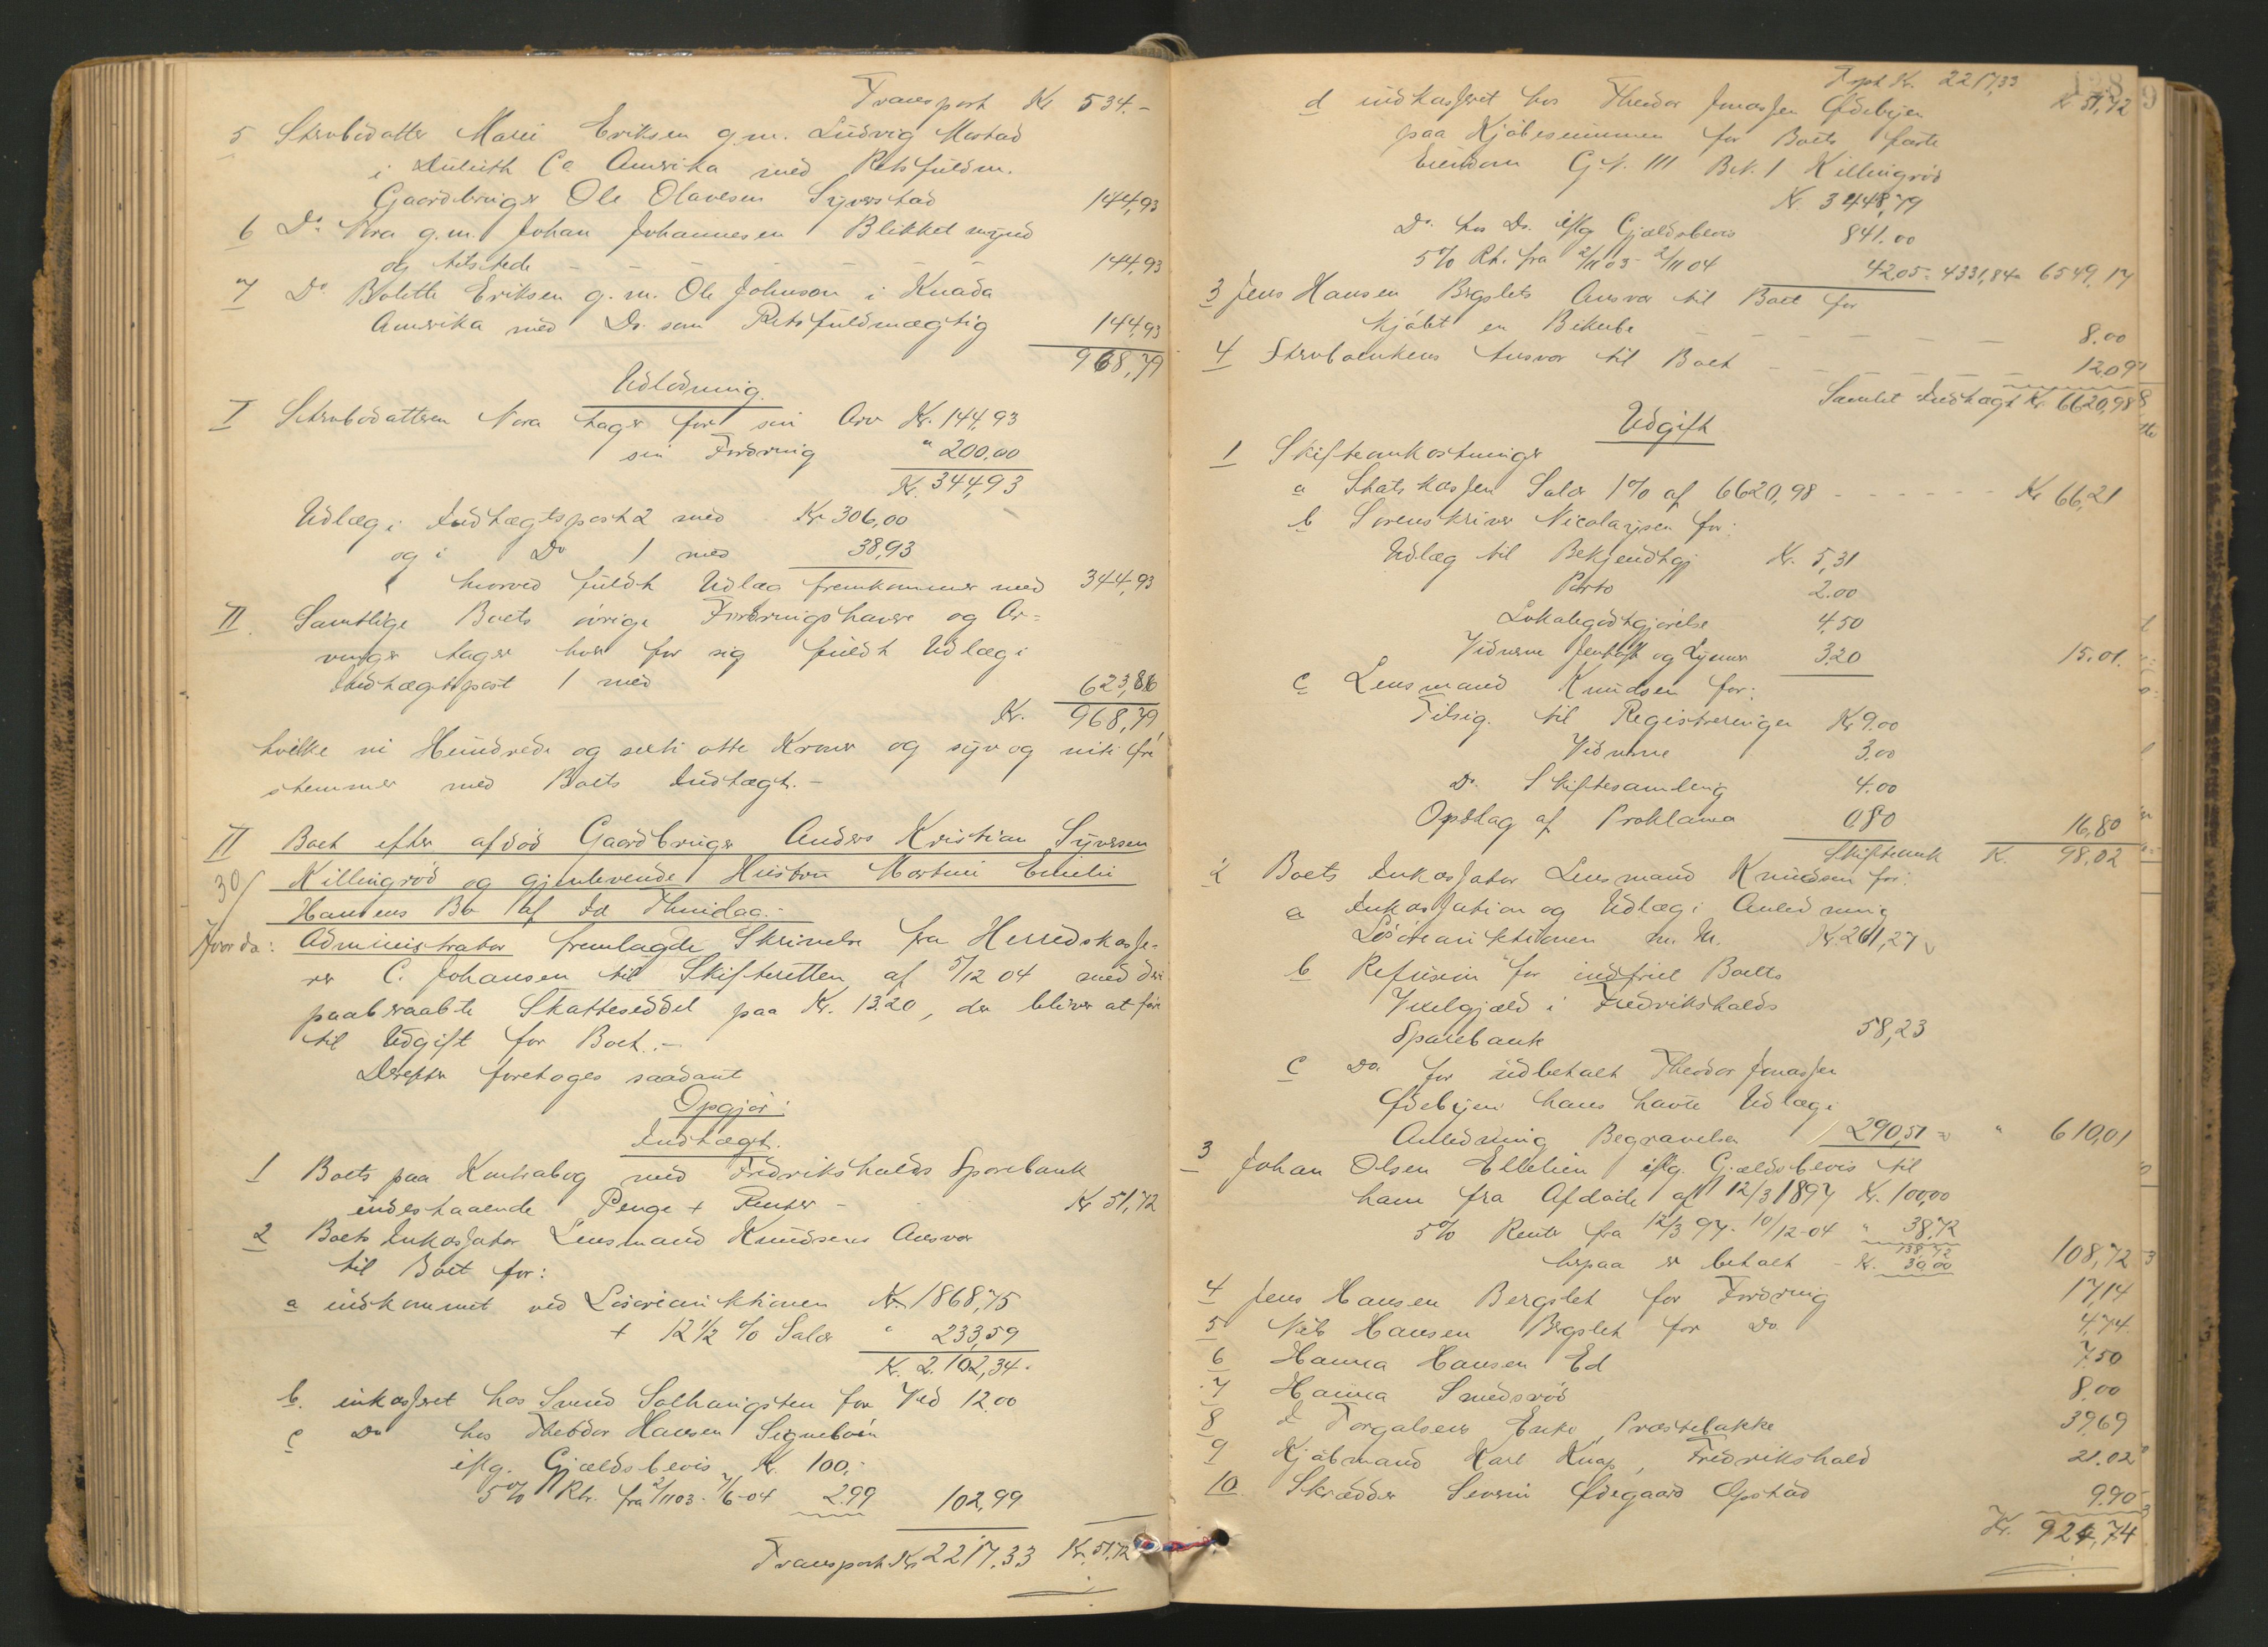 Transport Kr 534.-
5 Stevbødatter Marie Eriksen g.m. Ludvig Mostad
i Duluth Co Amerika med Retsfuldm.
Gaardbruger Ole Olavesen Syverstad 144,93
6 Do Nora g.m. Johan Johannesen Blekket mynd
og tilstede - - - - - - - 144,93
7 Do Bolette Eriksen g.m. Ole Johnson i Knada
Amerika med Do. som Retsfuldmægtig 144,93
968,79
Udlodning.
I Stevbødatteren Nora tager for sin Arv Kr. 144,93
sin Fordring " 200.00
Kr. 344,93
Udlæg i Indtægtspost 2 med Kr 306,00
og i Do 1 med 38,93
hvorved fuldt Udlæg fremkommer med 344,93
II. Samtlige Boets øvrige Fordringshavere og Ar=
vinger tager hver for sig fuldt Udlæg i
Indtægtspost 1 med 623,86
Kr. 968,79
hvilke ni Hundrede og sexti otte Kroner og syv og niti Øre
stemmer med Boets Indtægt.-
II Boet efter afdød Gaardbruger Anders Kristian Syversen
30/ Killingrød og gjenlevende Hustru Martine Emilie
Hansens Bo af Id Thinglag.-
Hvorda: Administrator fremlagde Skrivelse fra Herredskasse-
rer C. Johansen til Skifteretten af 5/12 04 med deri
paaberaabte Skatteseddel paa Kr. 13.20, der bliver at føre
til Udgift for Boet.-
Derefter foretoges saadant
Opgjør:
Indtægt.
1 Boets paa Kontrabog med Fredrikshalds Sparebank
indestaaende Penge + Renter - Kr 51,72
2 Boets Inkassator Lensmand Knudsens Ansvar
til Boet for:
a indkommet ved Løsøreauktionen Kr 1868,75
+ 12 1/2 % Salær " 233,59
Kr. 2.102,34.
b. inkasseret hos Svend Solhaugsten for Ved 12.00
c Do hos Theodor Hansen Signebøen
iflg. Gjældsbevis Kr. 100,-
5% Rtr. fra 2/11 03- 7/6-04 2.99 102,99
Transport Kr 2217.33 Kr. 51,72
Trpt Kr. 2217,33
128
9
d indkasseret hos Theodor Jonassen Ødebyen Kr 51,72
paa Kjøbesummen for Boets faste
Eiendom G.N. 111 Br.N. 1 Killingrød
Kr. 3448,79
Do. hos Do. iflg Gjældsbevis 841.00
5% Rt. fra 2/11 03- 2/11 04 42.05 = 4331,84 = 6549,17
3 Jens Hansen Bergslets Ansvar til Boet for
kjøbt en Bikube - - - - - 8.00
4 Stervboenkens Ansvar til Boet - - - - - 12.09
Samlet Indtægt Kr. 6620,98
Udgift
1 Skifteomkostninger
a Statskassen Salær 1% af 6620,98 - - - - - - Kr 66,21
b Sorenskriver Nicolaysen for:
Udlæg til Bekjendtgj Kr. 5,31
Porto 2.00
Lokalegodtgjørelse 4,50
Vidnerne og Lysene 3.20 15.01.
c Lensmand Knudsen for:
Tilsig. til Registreringen Kr 9.00
Vidnerne 3.00
Do. Skiftesamling 4.00
Opslag af Proklama 0,80 16,80
Skifteomk K. 98,02
2 Boets Inkassator Lensmand Knudsen for:
a Inkassation og Udlæg i Anledning
Løsøreauktionen m. M. Kr. 261,27
b Refusion for indfriet Boets
Vexelgjæld i Fredrikshalds
Sparebank 58,23
c Do. for udbetalt Theodor Jonassen
Ødebyen hans havte Udlæg i
Anledning Begravelsen 290,51 = " 610,01
3 Johan Olsen Ellelien iflg. Gjældsbevis til
ham fra Afdøde af 12/3 1897 Kr. 100,00
5% Rente fra 12/3 97- 10/12-04 " 38,72
138,72
herpaa er betalt - Kr. 30,00 108,72
4 Jens Hansen Bergslet for Fordring 17,14
5 Nils Hansen Bergslet for Do 4,74.
6 Hanna Hansen Ed 7,50
7 Hanna Smedsrød 8,00
8 Torgalsens Enke Præstebakke 39,69
9 Kjøbmand Karl Knap, Fredrikshald 21.02
10. Skrædder Severin Ødegaard Opstad 9.90
Kr. 924,74